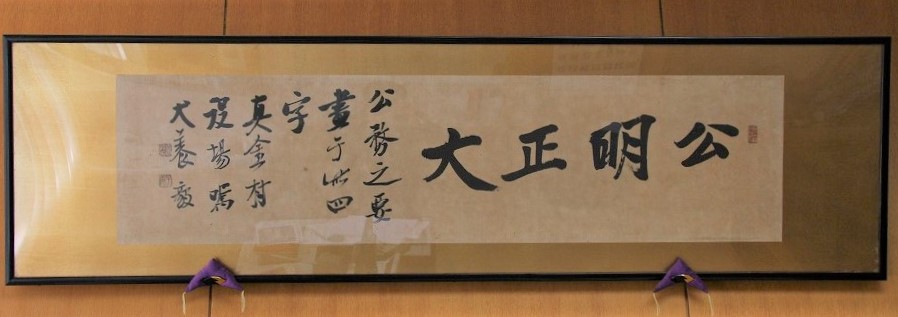 公明正大
公務之要
盡于此四
字
真金村
役場嘱
犬養毅